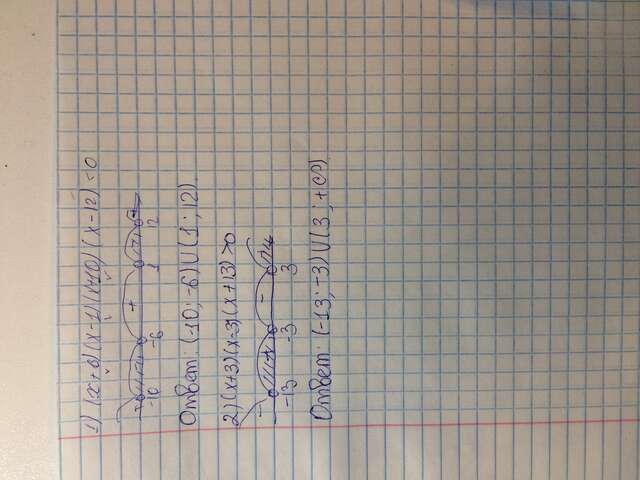 1) (x+6)(x-1)(x+10)(x-12) <0
+ - + - +
-10 -6 1 12
Ответ: (-10; -6)U(1; 12).
2) (x+3)(x-3)(x+13) >0
- + - +
-13 -3 3
Ответ: (-13; -3)U(3; +∞)